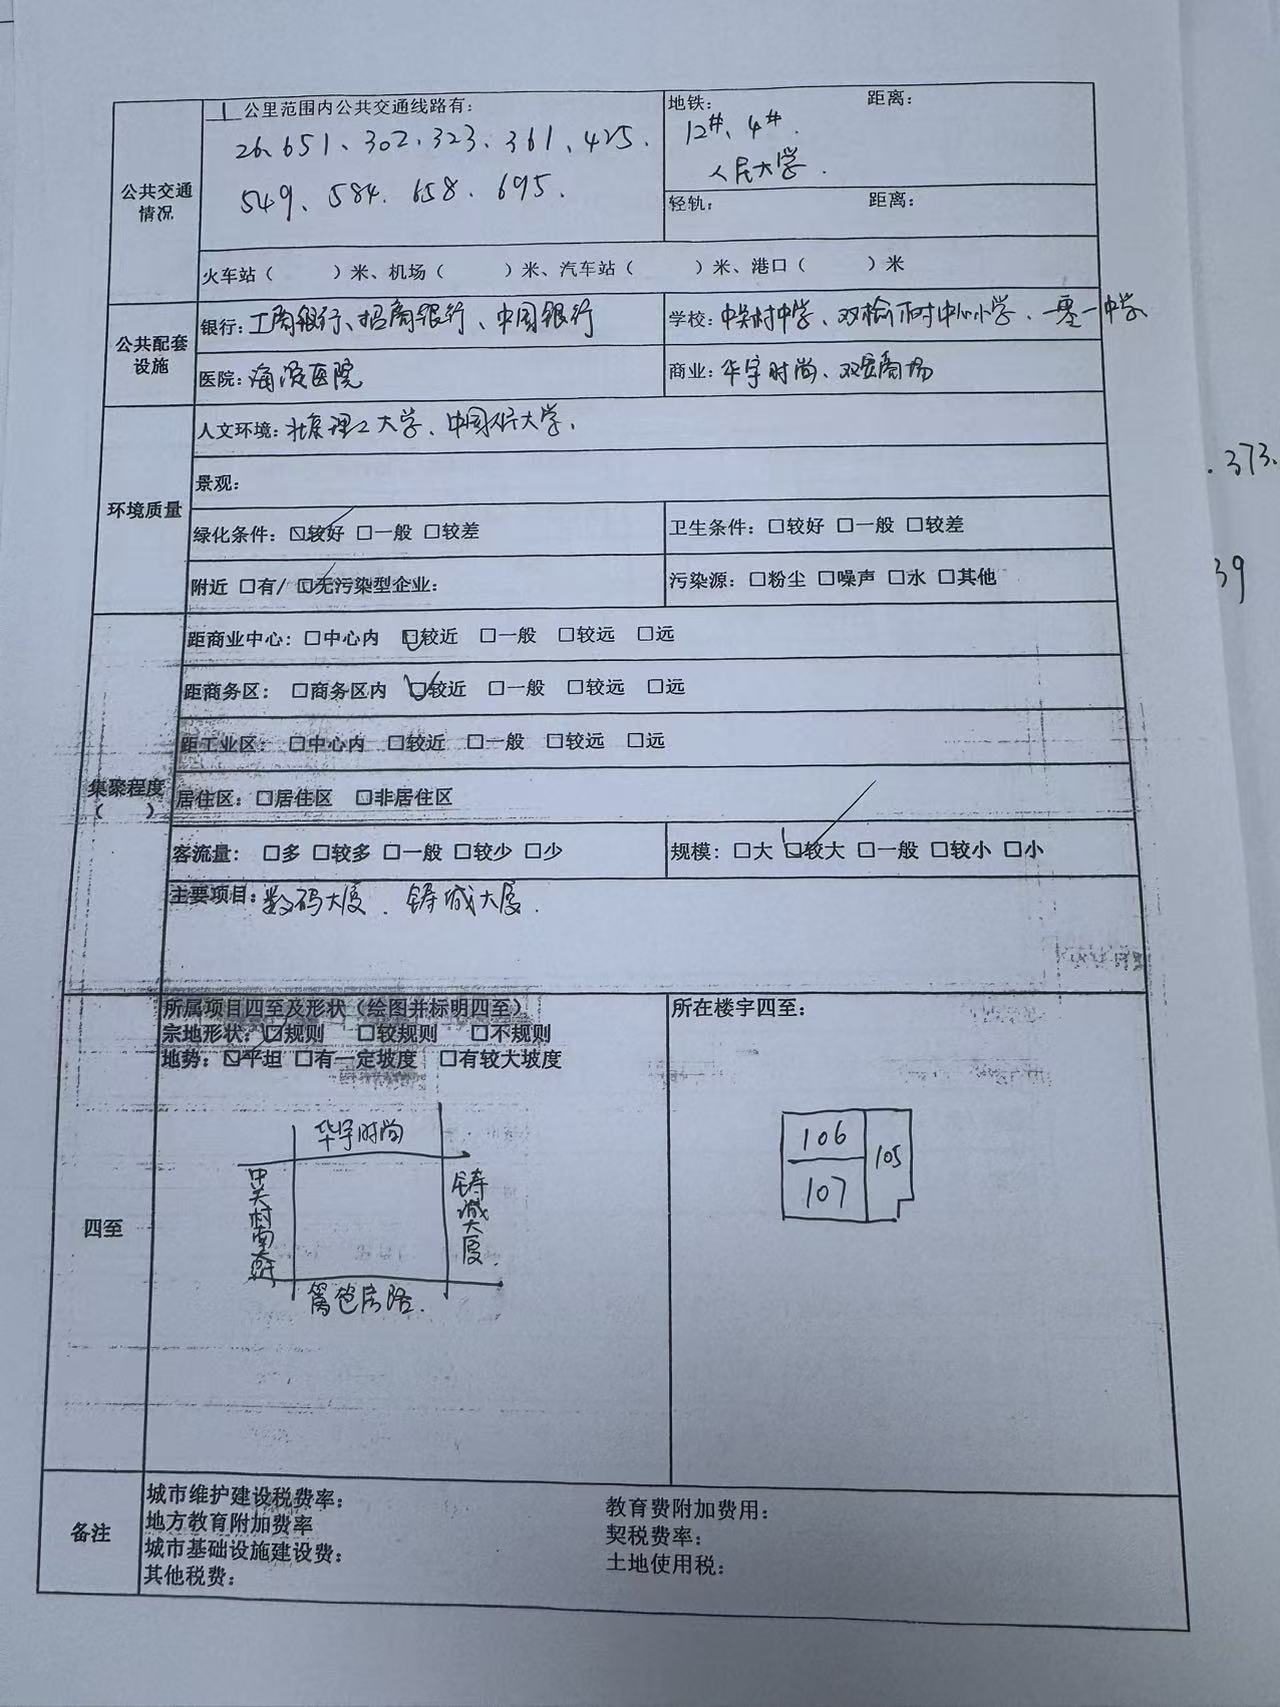 1 公里范围内公共交通线路有:
26、651、302、323、361、425.
549、584. 658. 695.
地铁: 距离:
12#、4#.
人民大学.
轻轨: 距离:
公共交通
情况
火车站（ ）米、机场（ ）米、汽车站（ ）米、港口（ ）米
公共配套
设施
银行: 工商银行、招商银行、中国银行
学校: 中关村中学、双榆树中心小学、一零一中学
医院: 海淀医院
商业: 华宇时尚、双安商场
环境质量
人文环境: 北京理工大学、中国人民大学、
景观:
绿化条件: ☑较好 □一般 □较差
卫生条件: □较好 □一般 □较差
附近 □有/ ☑无污染型企业:
污染源: □粉尘 □噪声 □水 □其他
.373.
39
集聚程度
（ ）
距商业中心: □中心内 ☑较近 □一般 □较远 □远
距商务区: □商务区内 ☑较近 □一般 □较远 □远
距工业区: □中心内 □较近 □一般 □较远 □远
居住区: □居住区 □非居住区
客流量: □多 □较多 □一般 □较少 □少
规模: □大 ☑较大 □一般 □较小 □小
主要项目: 数码大厦. 铸城大厦.
四至
所属项目四至及形状（绘图并标明四至）
宗地形状: ☑规则 □较规则 □不规则
地势: ☑平坦 □有一定坡度 □有较大坡度
华宇时尚
中关村南大街
铸城大厦.
篱笆房路.
所在楼宇四至:
106
105
107
备注
城市维护建设税费率:
地方教育附加费率
城市基础设施建设费:
其他税费:
教育费附加费用:
契税费率:
土地使用税: